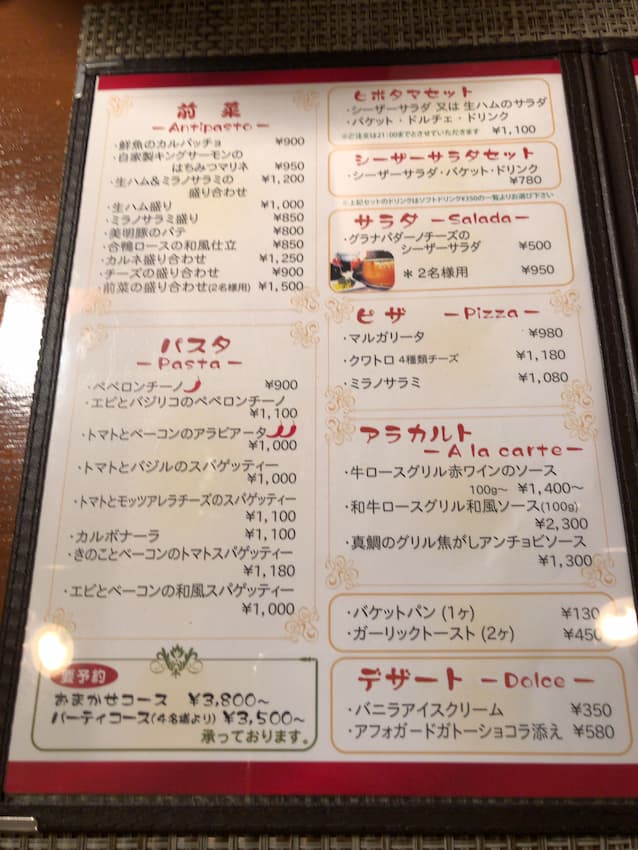 前菜
-Antipasto-
・鮮魚のカルパッチョ ¥900
・自家製キングサーモンの
はちみつマリネ ¥950
・生ハム&ミラノサラミの ¥1,200
盛り合わせ
・生ハム盛り ¥1,000
・ミラノサラミ盛り ¥850
・美明豚のパテ ¥800
・合鴨ロースの和風仕立 ¥850
・カルネ盛り合わせ ¥1,250
・チーズの盛り合わせ ¥900
・前菜の盛り合わせ(2名様用) ¥1,500
パスタ
-Pasta-
・ペペロンチーノ ¥900
・エビとバジリコのペペロンチーノ
¥1,100
・トマトとベーコンのアラビアータ
¥1,000
・トマトとバジルのスパゲッティー
¥1,000
・トマトとモッツアレラチーズのスパゲッティー
¥1,100
・カルボナーラ ¥1,100
・きのことベーコンのトマトスパゲッティー
¥1,180
・エビとベーコンの和風スパゲッティー
¥1,000
要予約
おまかせコース ¥3,800～
パーティコース(4名様より) ¥3,500～
承っております。
ヒポタマセット
・シーザーサラダ 又は 生ハムのサラダ
・バケット・ドルチェ・ドリンク
※ご注文は21:00までとさせていただきます ¥1,100
シーザーサラダセット
・シーザーサラダ・バケット・ドリンク
¥780
※上記セットのドリンクはソフトドリンク¥350の一覧よりお選び下さい
サラダ -Salada-
・グラナパダーノチーズの
シーザーサラダ ¥500
＊2名様用 ¥950
ピザ -Pizza-
・マルガリータ ¥980
・クワトロ 4種類チーズ ¥1,180
・ミラノサラミ ¥1,080
アラカルト
-A la carte-
・牛ロースグリル赤ワインのソース
100g～ ¥1,400～
・和牛ロースグリル和風ソース(100g)
¥2,300
・真鯛のグリル焦がしアンチョビソース
¥1,300
・バケットパン (1ヶ) ¥130
・ガーリックトースト (2ヶ) ¥450
デザート -Dolce-
・バニラアイスクリーム ¥350
・アフォガードガトーショコラ添え ¥580